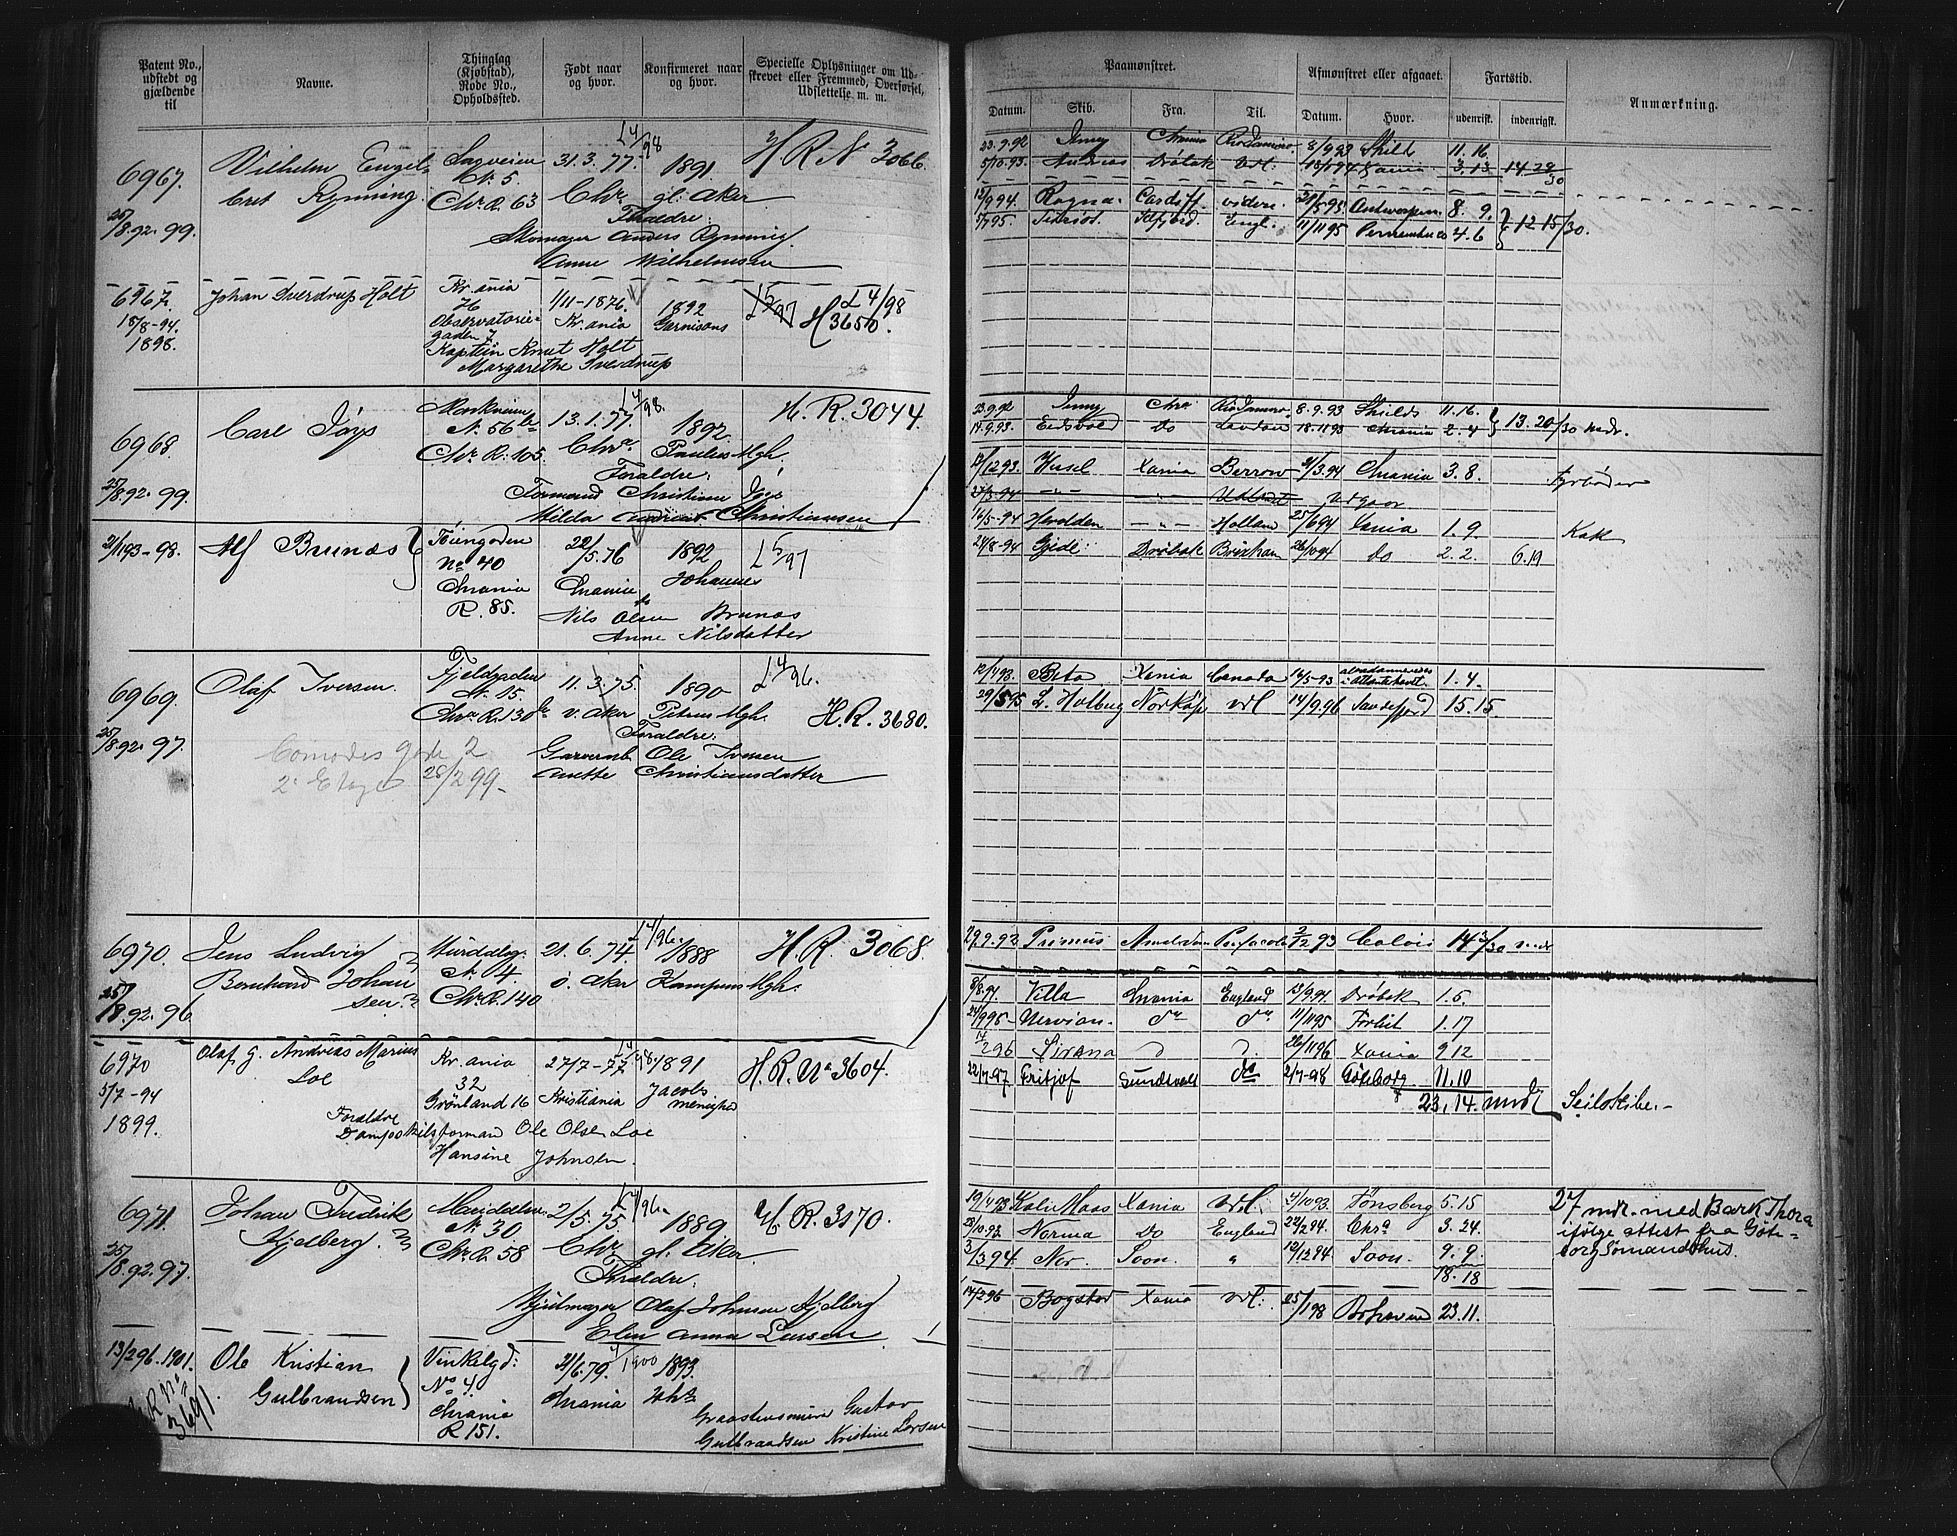 Patent No., udstedt og gjældende til
Navne.
Thinglag (Kjøbstad), Rode No., Opholdssted.
Født naar og hvor.
Konfirmeret naar og hvor.
Specielle Oplysninger om Udskrevet eller Fremmed, Overførsel, Udslettelse m. m.
6967.
25/8.92. 99.
Vilhelm Engel-
bret Rynning
Sagveien
N. 5.
Chr. R. 63
31.3.77.
Chr.
L 4/98
1891
gl: Aker
H. R. N 3066.
Forældre:
Skomager Anders Rynning
Anne Wilhelmsen
6967.
18/8-94.
1898.
Johan Sverdrup Holt
Kr. ania
76
Observatorie-
gaden 7
1/11-1876.
Kr. ania
1892
Garnisons
L 5/97
L 4/98
H 3650.
Kaptein Knut Holt
Margarethe Sverdrup
6968.
25/8.92. 99.
Carl
Markveien
N. 56 b
Chr. R. 105.
13.1.77.
Chr a
L 4/98.
1892.
Paulus Mgh.
H. R. 3044.
Forældre:
Formand Christian
Hilda Christiansen
21/1 93-98.
Alf Brunæs
Toiengaden
No 40
Chrania
R. 85.
22/5.76
Chrania
1892
Johannes
L 5/97
Nils Olsen Brunæs
Anne Nilsdatter
6969.
25/8.92. 97.
Olaf Iversen.
Fjeldgaden
N. 15
Chr a R. 130 b
11.3.75.
v. Aker
1890
Petrus Mgh.
L 4/96.
H. R. 3680.
Forældre:
Ole Iversen
Anette Christiansdatter
gade 2
2. Etage 28/2 99-
6970.
25/8.92. 96
Jens Ludvig
Bernhard Johan
sen.
N. 4.
Chr. R. 140
21.6.74.
ø. Aker
L 4/96.
1888
Kampens Mgh.
H. R. 3068.
6970
5/7-94
1899.
Olaf G. Andreas Marius
Loe
Kr. ania
32
Grønland 16
27/7-77
Kristiania
1891
Jacobs
menighed
H. R. No 3604.
Forældre
Dampskibsformand Ole Olsen Loe
Hansine Johnsen.
6971.
25/8.92. 97.
Johan Fredrik
Kjelberg.
Maridalsv.
N. 30
Chr. R. 58
2/5.75.
Chr.
L 4/96.
1889
gl: Aker
H. R. 3170.
Forældre.
Hjulmager Olaf Johnsen Kjelberg
Elen Anna Larsen
13/2 96. 1901.
H. R. No 3691.
Ole Kristian
Gulbrandsen
Vinkelgd:
No 4.
Chrania
R 151.
21/6.79.
Chrania
4/1900
1893.
Graastensminerer Gustav
Gulbrandsen Kristine Larsen
Paamønstret.
Afmønstret eller afgaaet.
Fartstid.
Anmærkning.
Datum. Skib. Fra. Til. Datum. Hvor. udenrisk. indenrigsk.
23.9.92 Jenny Chrania Rio Janeiro 8/9 93 Shild 11.16.
5/10.93. Andreas Drøbak Udl: Xania 3.13 14.29/30
12/9 94. Ragna Cardiff videre. 31/5 95 Antwerpen 8. 9.
Engl. 11/11 95 Pernambuco 4.6 12 15/30.
23.9.92 Jenny Chra Rio Janeiro 8.9.93 Shilds 11.16.
19.9.93. Eidsvold Do London 18.11 93 Chrania 2.4 13.20/30 mdr.
12/12 93. Husel Xania Barrow 21/3.94 Chrania 3.8. Fyrbøder
27/3-94 -"- -"- Udlandet Udgaar
16/5-94 Haralden -"- Holland 25/6 94 Xania 1. 9. Kok
24/8-94 Gjede Drøbak Brixham 26/10 94 Do 2. 2. 6.19
12/1 93. Beta Xania Canada 16/5-93 Atlanterhavet. 1. 4.
29/5 95 L. Holberg Norkøp. Udl 14/9.96 Sandefjord 15.15
29.9.92 Primus Pensacola 2/12 93 Calais
8/8.94. Villa Chrania England 23/9.94. Drøbak 1.5.
24/9 95- Nervion. do do 11/11 95 1.17
Sirana 26/11 96 Xania 9 12
22/7-97 Fritjof Sundsvall do 2/7-98 Göteborg 11.10
23.14. mndr Seilskibe.-
19/4 93 Kali Maas Xania Udl. 4/10 93. Tønsberg 5.15
28/10.93. Norma Do England 22/2 94. Chra 3. 24.
3/3 94. Nor. Soon. " 12/12 94 Soon. 9. 9.
18.18
14/2 96 Bogstad Xania Udl: 25/1 98 23.11.
27 mdr. med Bark Thora
ifølge attest fra Göte-
borg Sømandshus.